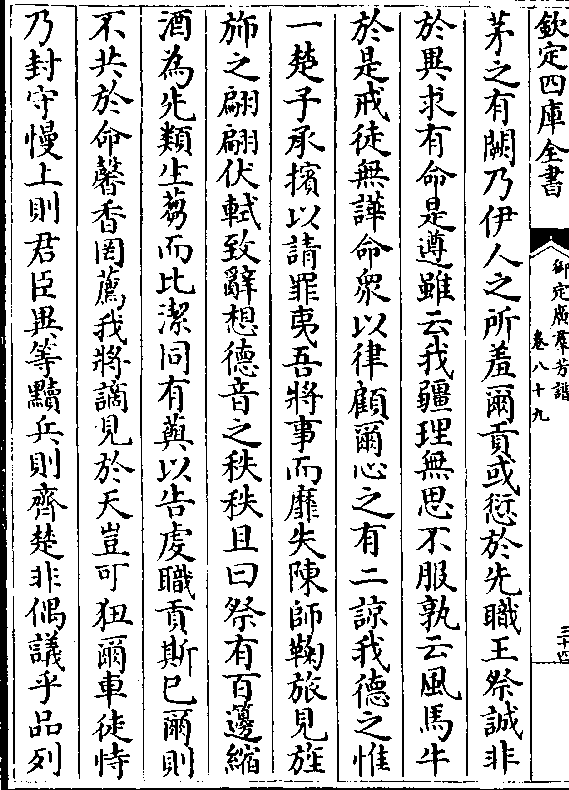 欽定四庫全書
御定廣羣芳譜
卷八十九
三十四
茅之有闕乃伊人之所羞爾貢或愆於先職王祭誠非
於異求有命是遵雖云我疆理無思不服孰云風馬牛
於是戒徒無譁命衆以律顧爾心之有二諒我德之惟
一楚子承擯以請罪夷吾將事而靡失陳師鞠旅見旌
斾之翩翩伏軾致辭想德音之秩秩且曰祭有百籩縮
酒為先類生蒭而比潔同有蕡以告虔職貢斯已爾則
不共於命馨香罔薦我將謫見於天豈可狃爾車徒恃
乃封守慢上則君臣異等黷兵則齊楚非偶議乎品列